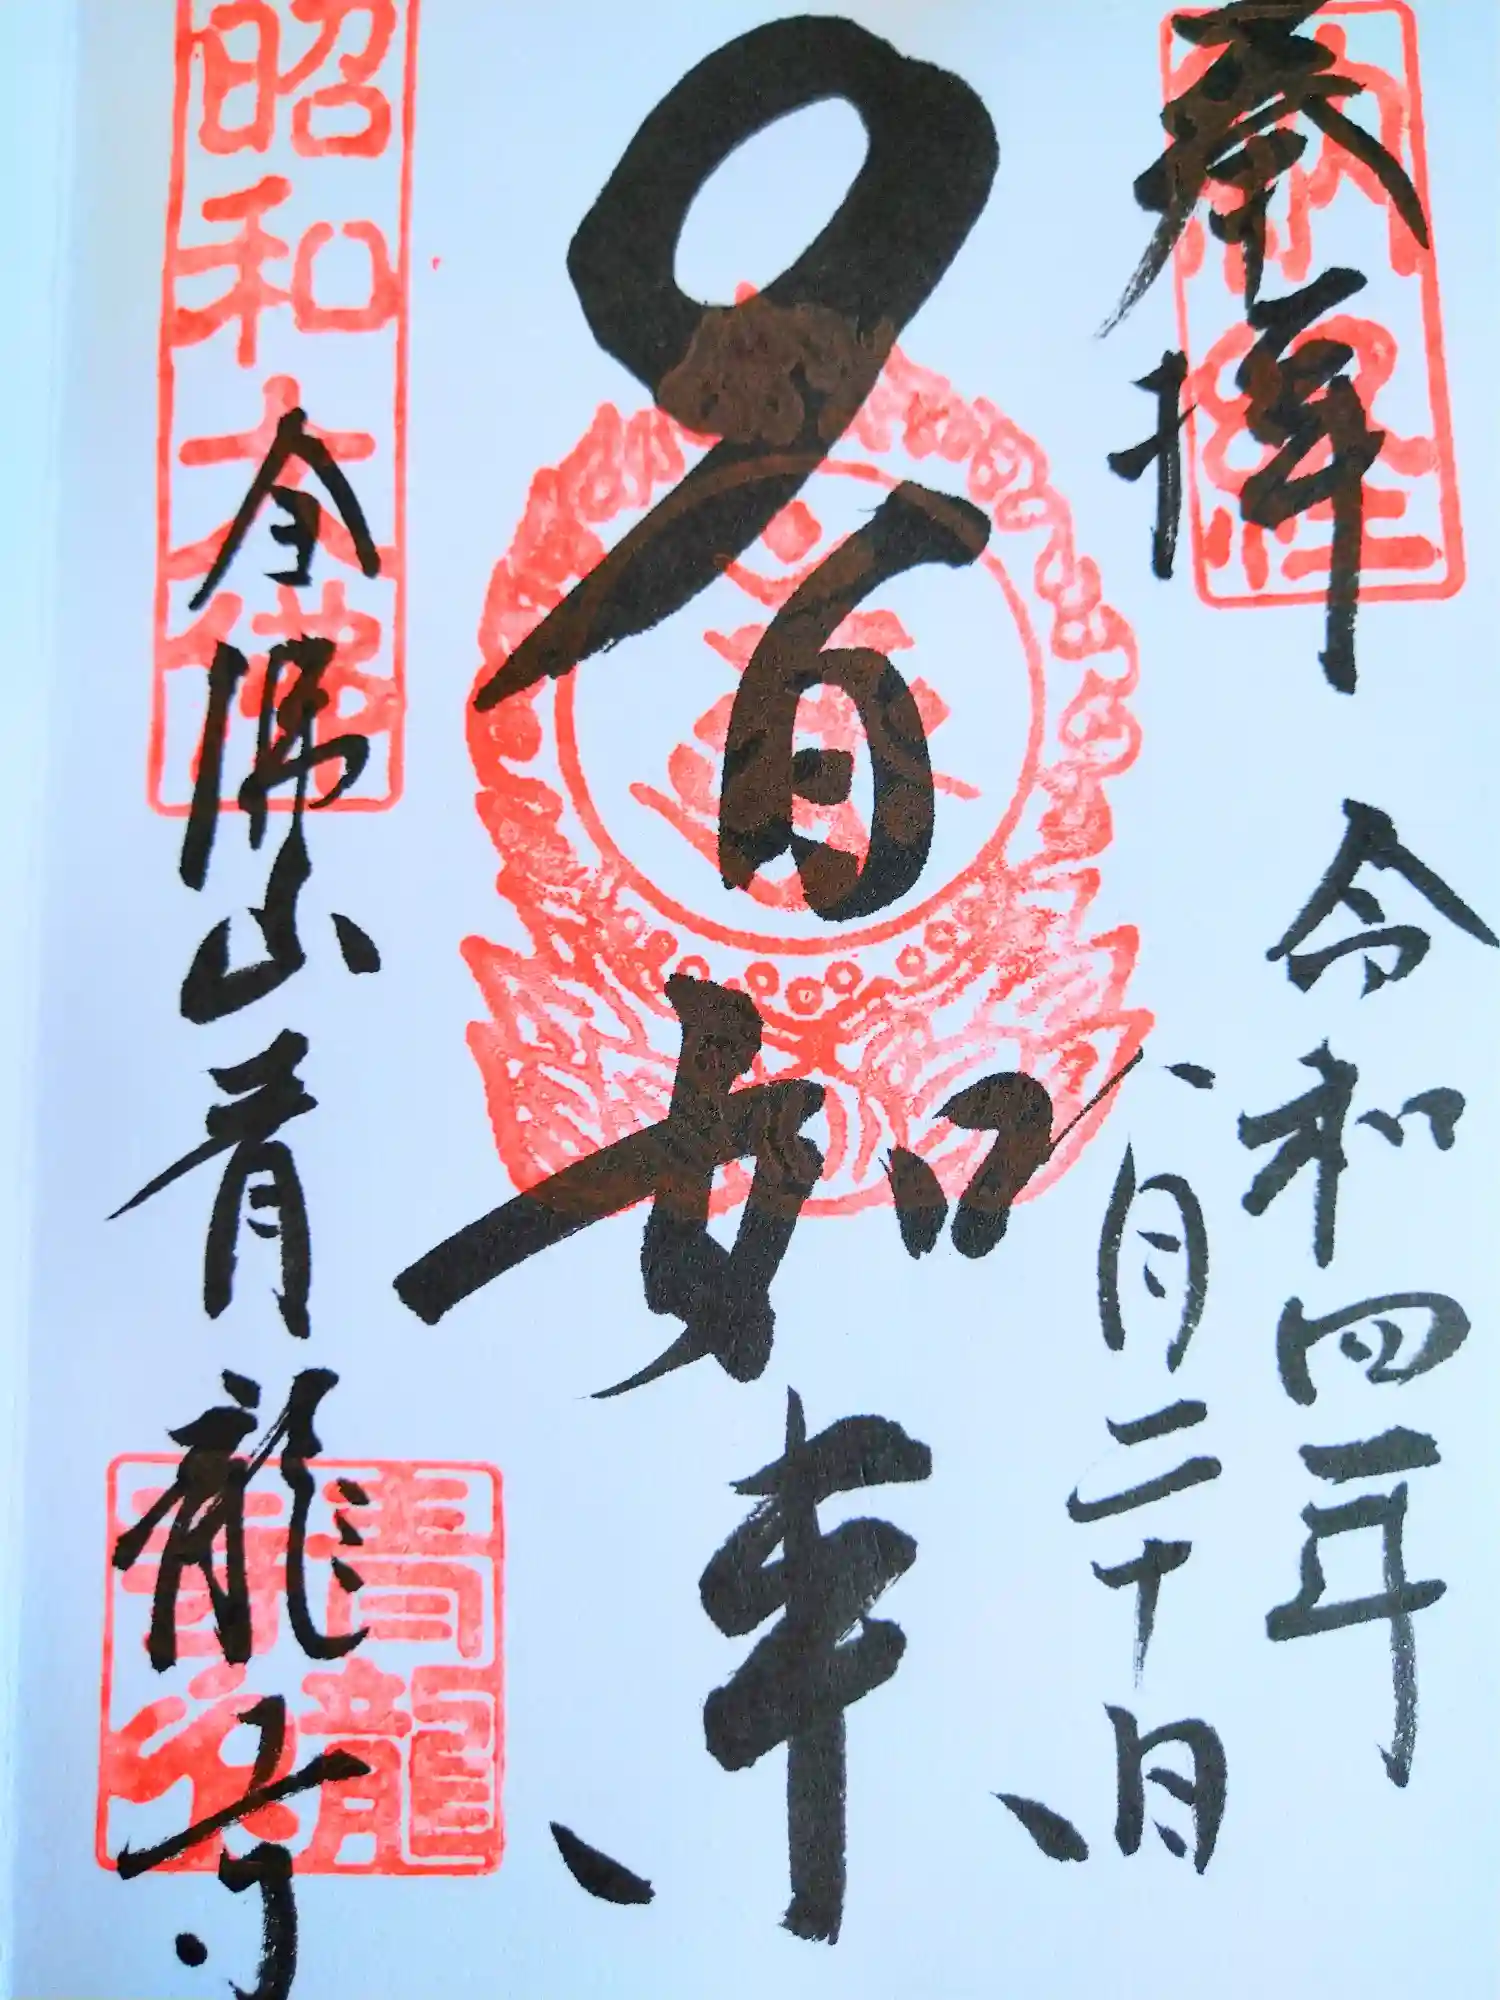 奉拝
納経
令和四年
八月二十日
大日如来
昭和大佛
全佛山青龍寺
青龍寺